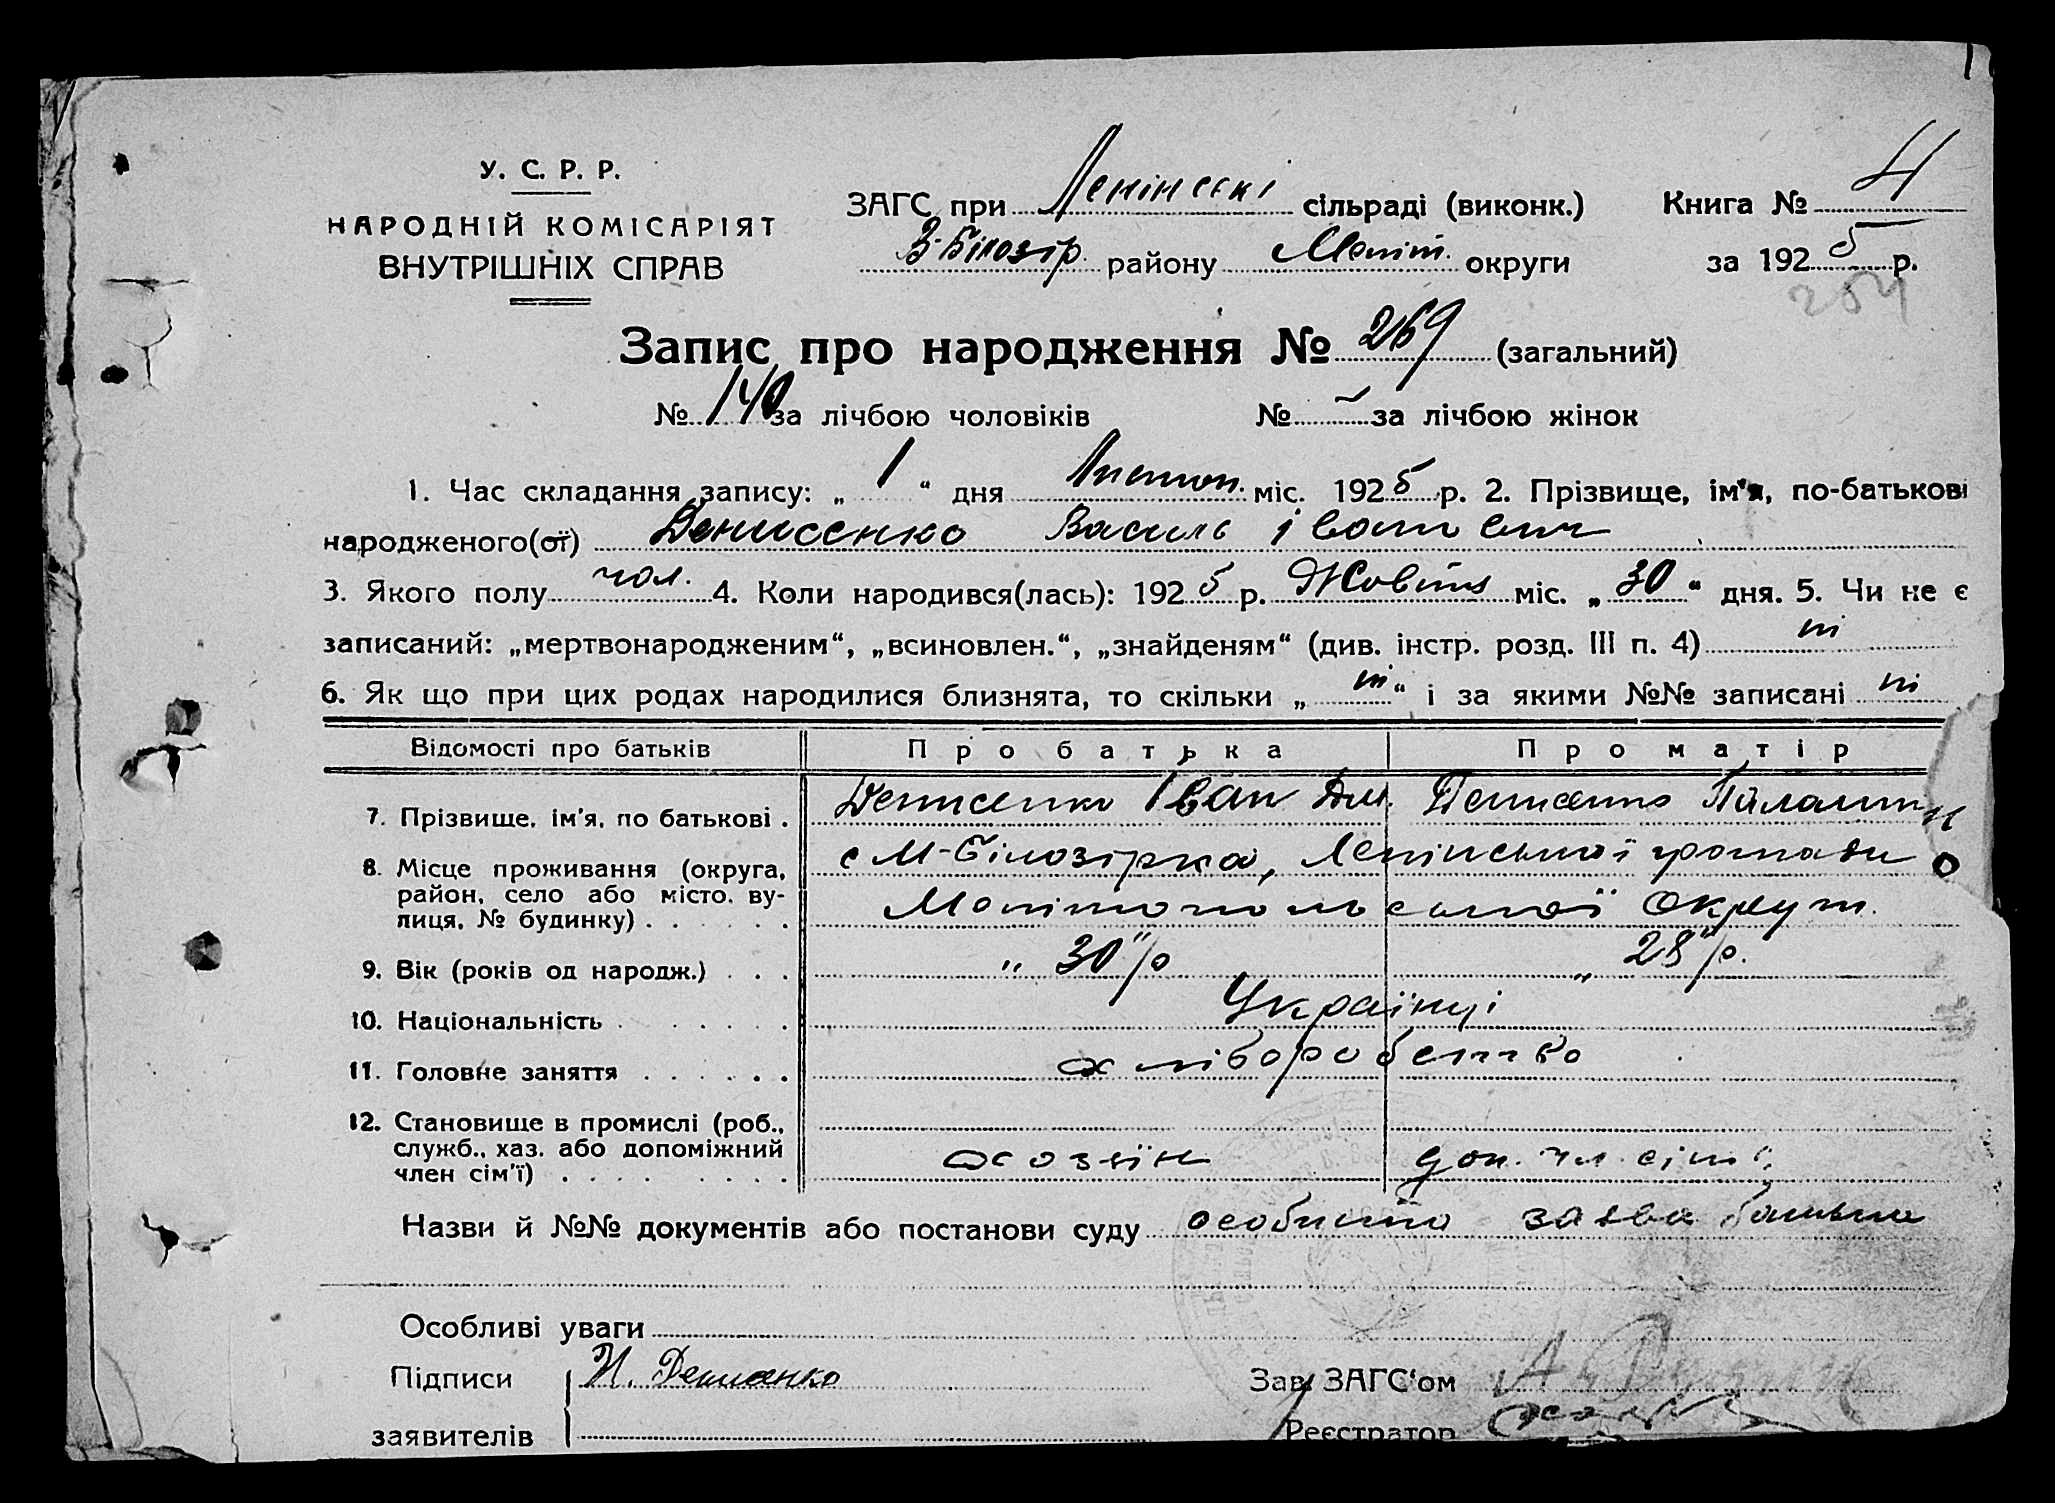 У. С. Р. Р.
НАРОДНІЙ КОМІСАРІЯТ
ВНУТРІШНІХ СПРАВ
ЗАГС при Ленінські сільраді (виконк.) Книга № 4
В-Білозір. району Меліт. округи за 1925 р.
254
Запис про народження № 269 (загальний)
№ 140 за лічбою чоловіків № — за лічбою жінок
1. Час складання запису: „ 1 “ дня Листоп. міс. 1925 р. 2. Прізвище, ім'я, по-батькові
народженого(ої) Денисенко Василь Іванович
3. Якого полу чол. 4. Коли народився(лась): 1925 р. Жовтня міс. „ 30 “ дня. 5. Чи не є
записаний: „мертвонародженим“, „всиновлен.“, „знайденям“ (див. інстр. розд. III п. 4) ні
6. Як що при цих родах народилися близнята, то скільки „ ні “ і за якими №№ записані ні
Відомості про батьків Про батька Про матір
7. Прізвище, ім'я, по батькові . Денисенко Іван Дм. Денисенко
8. Місце проживання (округа, район, село або місто, вулиця, № будинку) . . . . . . с М-Білозірка, Ленінської громади
Мелітопольської Округи.
9. Вік (років од народж.) . . . „ 30“ р „ 28“ р.
10. Національність . . . . . . Українці
11. Головне заняття . . . . . . хліборобство
12. Становище в промислі (роб., служб., хаз. або допоміжний член сім'ї) . . . . . . . . хозяїн доп. чл. сім'ї
Назви й №№ документів або постанови суду особиста заява батька
Особливі уваги
Підписи И. Денисенко Зав. ЗАГС'ом
заявителів Реєстратор